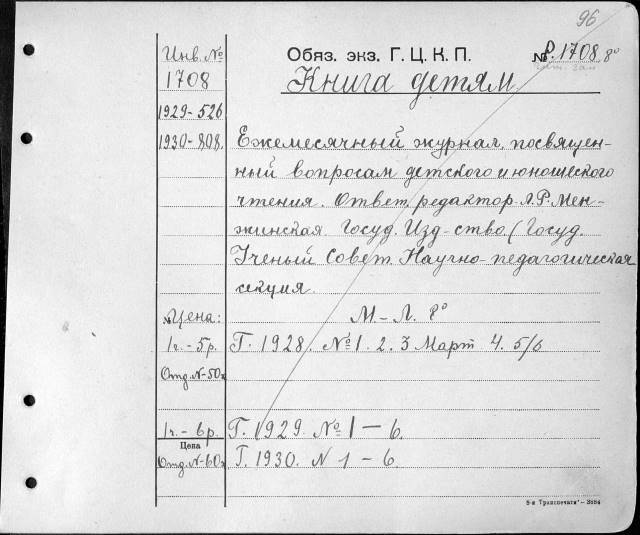 96
Инв. № Обяз. экз. Г. Ц. К. П. № Р. 1708 8°
1708 Книга детям
1929-526
1930-808. Ежемесячный журнал, посвящен-
ный вопросам детского и юношеского
чтения. Ответ. редактор Л. Р. Мен-
жинская. Госуд. Изд-ство. (Госуд.
Ученый Совет. Научно-педагогическая
секция.
Цена: М.-Л. 8°
1 г. - 5 р. Г. 1928. № 1. 2. 3 Март 4. 5/6
Отд. N - 50 к
1 г. - 6 р. Г. 1929. № 1 — 6.
Цена
Отд. N - 60 к Г. 1930. N 1 — 6.
5-я Транспечати — 3884